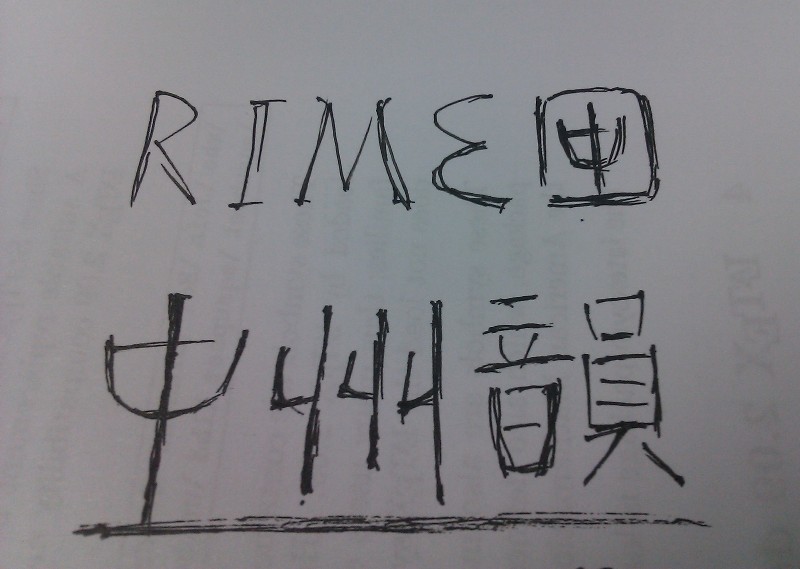 RIME中
中州韻